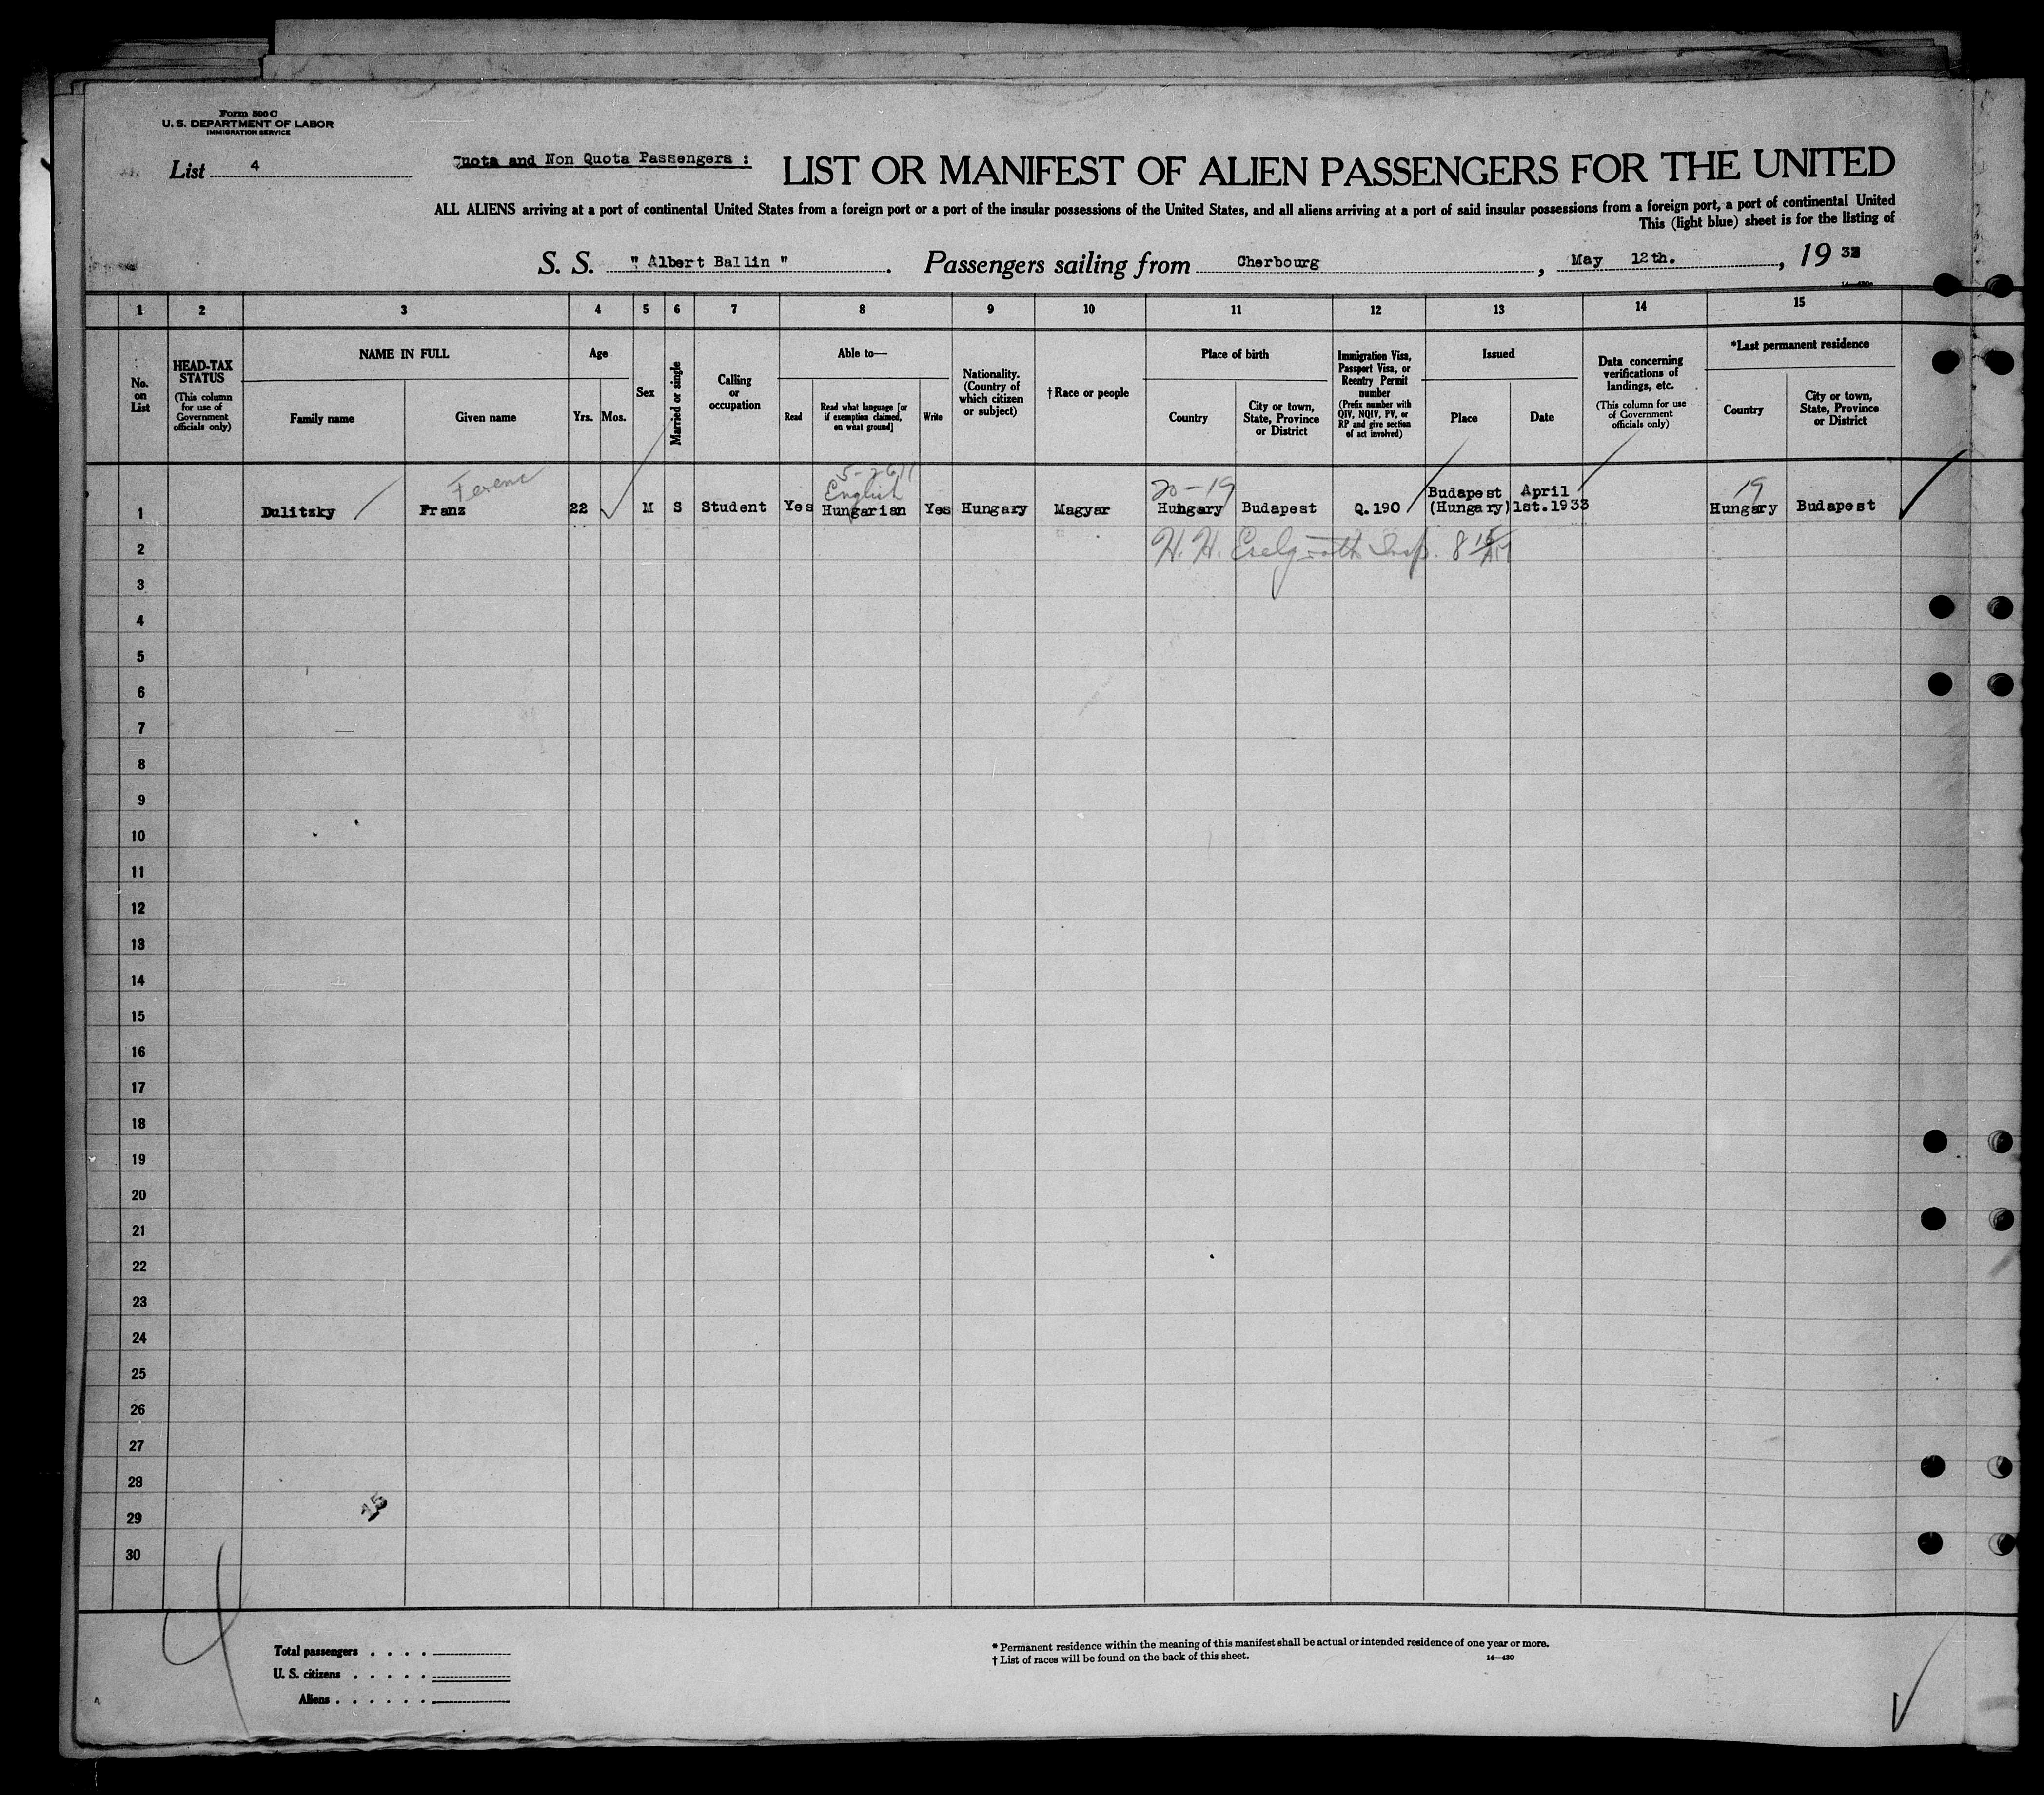 Form 500 C
U. S. DEPARTMENT OF LABOR
IMMIGRATION SERVICE
List 4
Quota and Non Quota Passengers :
LIST OR MANIFEST OF ALIEN PASSENGERS FOR THE UNITED
ALL ALIENS arriving at a port of continental United States from a foreign port or a port of the insular possessions of the United States, and all aliens arriving at a port of said insular possessions from a foreign port, a port of continental United
This (light blue) sheet is for the listing of
S. S. " Albert Ballin " . Passengers sailing from Cherbourg , May 12th. , 19 33
1 2 3 4 5 6 7 8 9 10 11 12 13 14 15
No. on List
HEAD-TAX STATUS
(This column for use of Government officials only)
NAME IN FULL
Family name
Given name
Age
Yrs. Mos.
Sex
Married or single
Calling or occupation
Able to—
Read
Read what language [or if exemption claimed, on what ground]
Write
Nationality. (Country of which citizen or subject)
† Race or people
Place of birth
Country
City or town, State, Province or District
Immigration Visa, Passport Visa, or Reentry Permit number
(Prefix number with QIV, NQIV, PV, or RP and give section of act involved)
Issued
Place
Date
Data concerning verifications of landings, etc.
(This column for use of Government officials only)
*Last permanent residence
Country
City or town, State, Province or District
Ferenc
5-26
English
20-19
19
1 Dulitzky Franz 22 M S Student Yes Hungarian Yes Hungary Magyar Hungary Budapest Q.190 Budapest (Hungary) April 1st.1933 Hungary Budapest
2 H. H. Insp. 8
3
4
5
6
7
8
9
10
11
12
13
14
15
16
17
18
19
20
21
22
23
24
25
26
27
28
29
30
Total passengers . . . .
U. S. citizens . . . . .
Aliens . . . . . .
* Permanent residence within the meaning of this manifest shall be actual or intended residence of one year or more.
† List of races will be found on the back of this sheet.
14—430